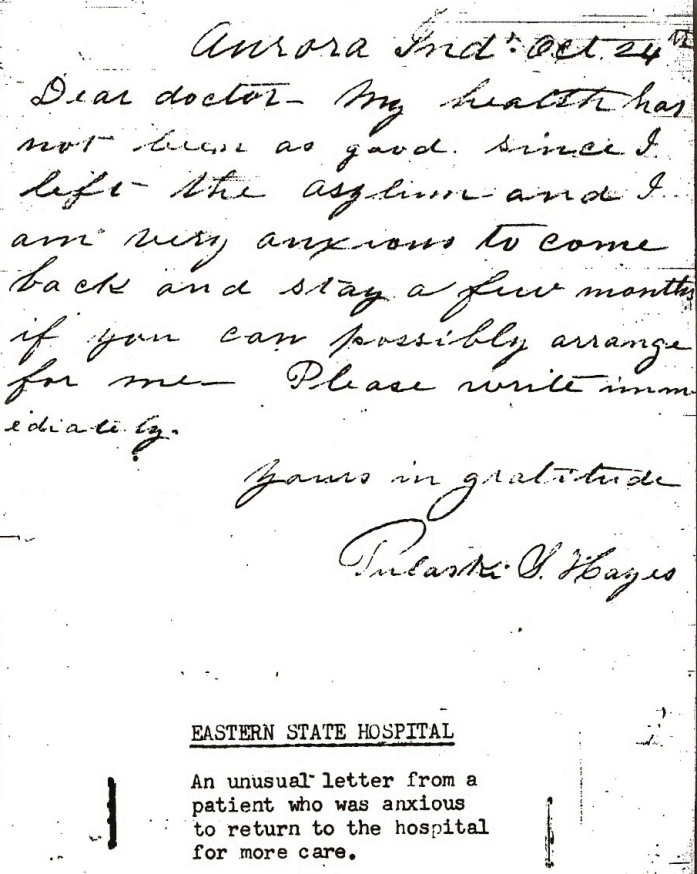 Aurora Ind. Oct. 24
Dear doctor- My health has
not been as good. since I
left the asylum and I
am very anxious to come
back and stay a few months
if you can possibly arrange
for me- Please write imm
ediately.
Yours in gratitude
Pulaski S. Hayes
EASTERN STATE HOSPITAL
An unusual letter from a
patient who was anxious
to return to the hospital
for more care.